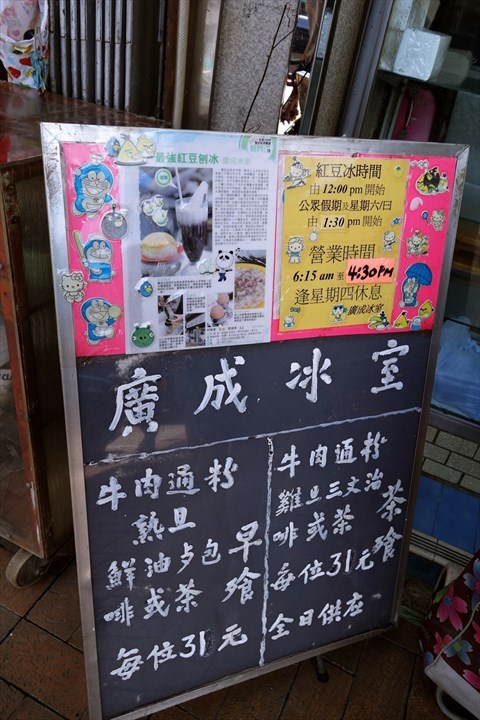 最強紅豆刨冰 廣成冰室
紅豆冰時間
由 12:00 pm 開始
公眾假期及星期六/日
由 1:30 pm 開始
營業時間
6:15 am 至 4:30 PM
逢星期四休息
廣成冰室
廣成冰室
牛肉通粉
熟旦
鮮油多包
啡或茶
每位31元
早餐
牛肉通粉
雞旦三文治
啡或茶
每位31元
全日供应
茶餐